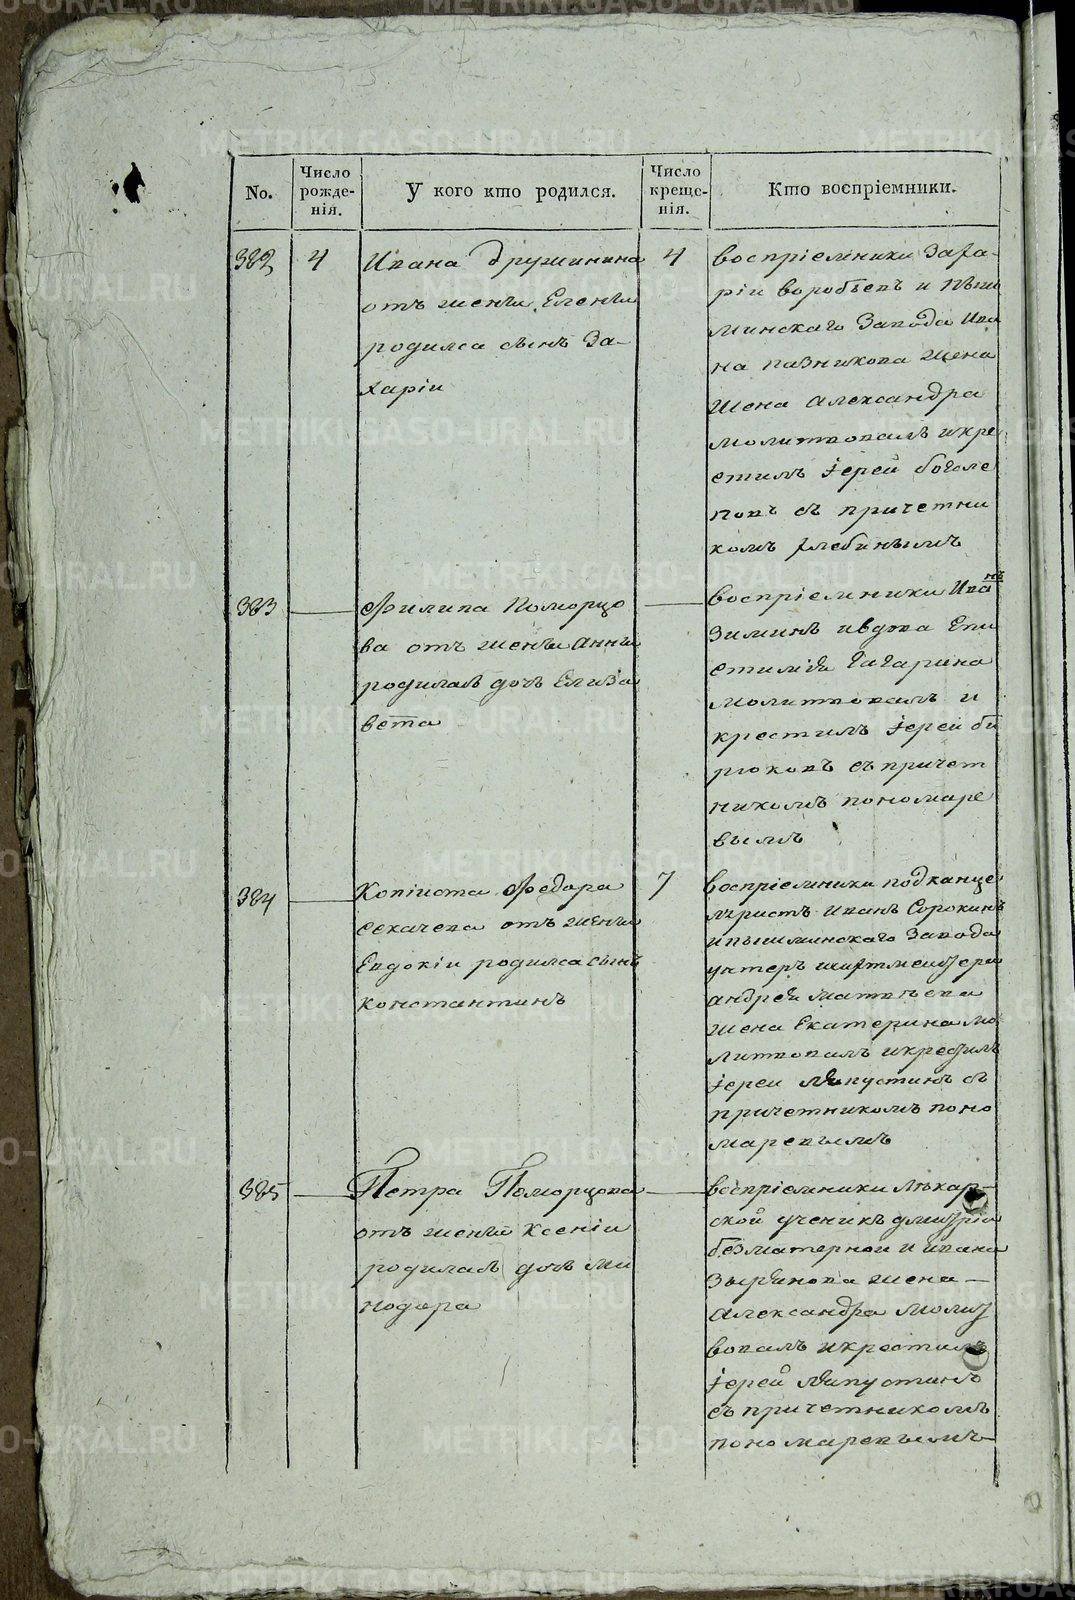 METRIKI.GASO-URAL.RU
No.
Число рожде-нія.
У кого кто родился.
Число креще-нія.
Кто воспріемники.
382
4
Ивана Дружинина
отъ жены Елены
родился сынъ За-
харіи
4
воспріемники Заха-
ріи воробьевъ и Пыш
минскаго Завода Ива
на пазникова жена
жена александра
молитвовалъ икре
стилъ іерей боголе
повъ съ причетни
комъ хлебинымъ
383
Филипа Поморцо
ва отъ жены анны
родилась дочь Елиза
вета
воспріемники Иванъ
Зиминъ ивдова Епи
стимѣя гагарина
молитвовалъ и
крестилъ іереи би
рюковъ съпричет
никомъ пономаре
вымъ
384
Копіиста Федора
секачева отъ жены
Евдокіи родился сынъ
константинъ
7
воспріемники подканце
ляристъ иванъ Сорокинъ
ипышминскаго Завода
унтеръ шихтмейстера
андрея матвѣева
жена Екатерина мо
литвовалъ икрестилъ
іереи ляпустинъ съ
причетникомъ поно
маревымъ
385
Петра Поморцова
отъ жены Ксеніи
родилась дочь ми
нодора
воспріемники лѣкар-
ской ученикъ дмитріи
безматерной и ивана
Зырянова жена
александра молит
вовалъ икрестилъ
іерей ляпустинъ
съ причетникомъ
пономаревымъ